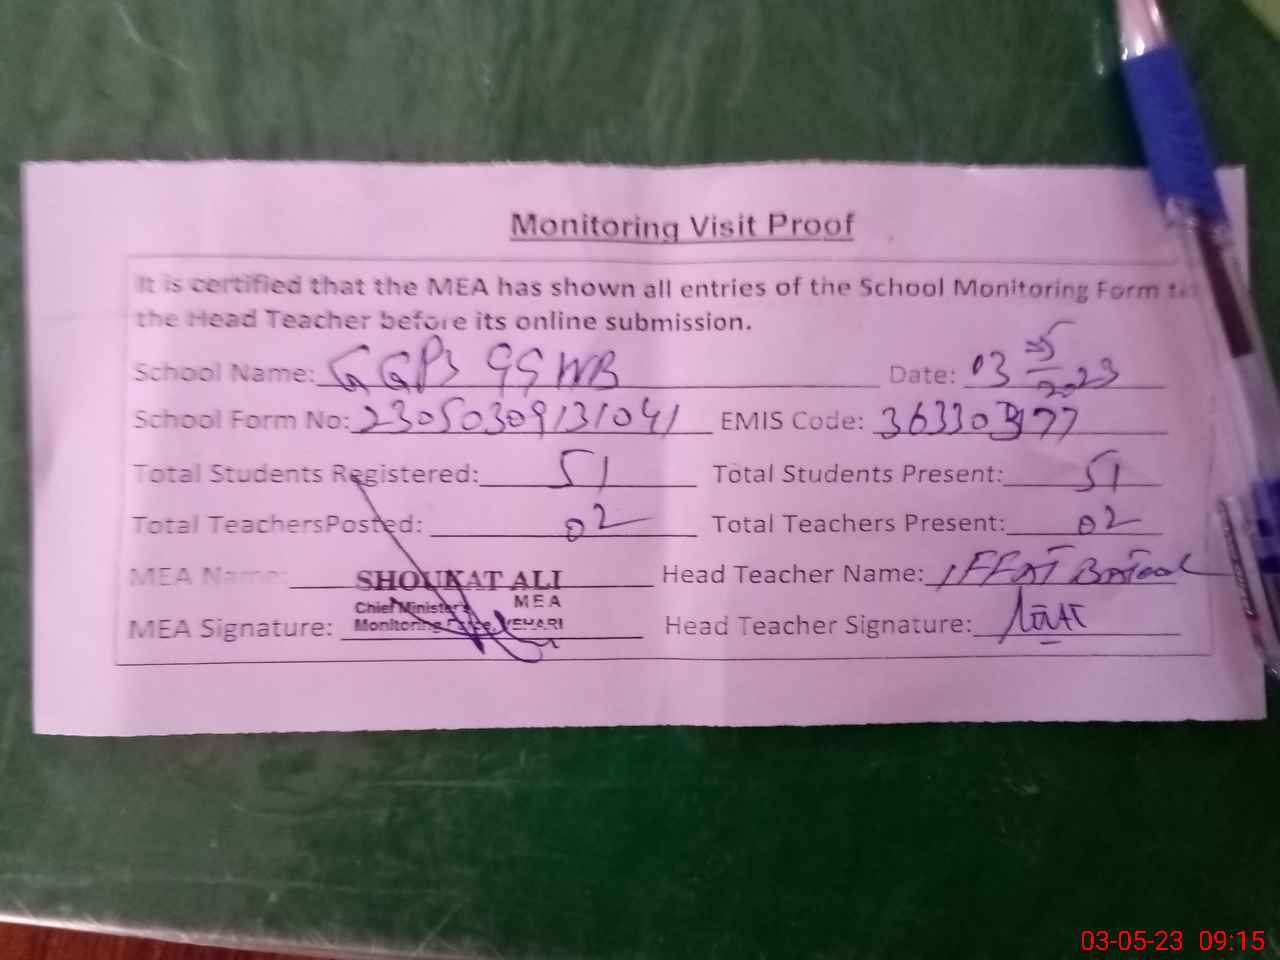 Monitoring Visit Proof
It is certified that the MEA has shown all entries of the School Monitoring Form to
the Head Teacher before its online submission.
School Name: GGPS 99 WB Date: 03-05-2023
School Form No: 23050309131041 EMIS Code: 36330377
Total Students Registered: 51 Total Students Present: 51
Total TeachersPosted: 02 Total Teachers Present: 02
MEA Name: SHOUKAT ALI Head Teacher Name: IFFAT Batool
MEA
Chief Minister's
Monitoring Force, VEHARI
MEA Signature: Head Teacher Signature:
03-05-23 09:15